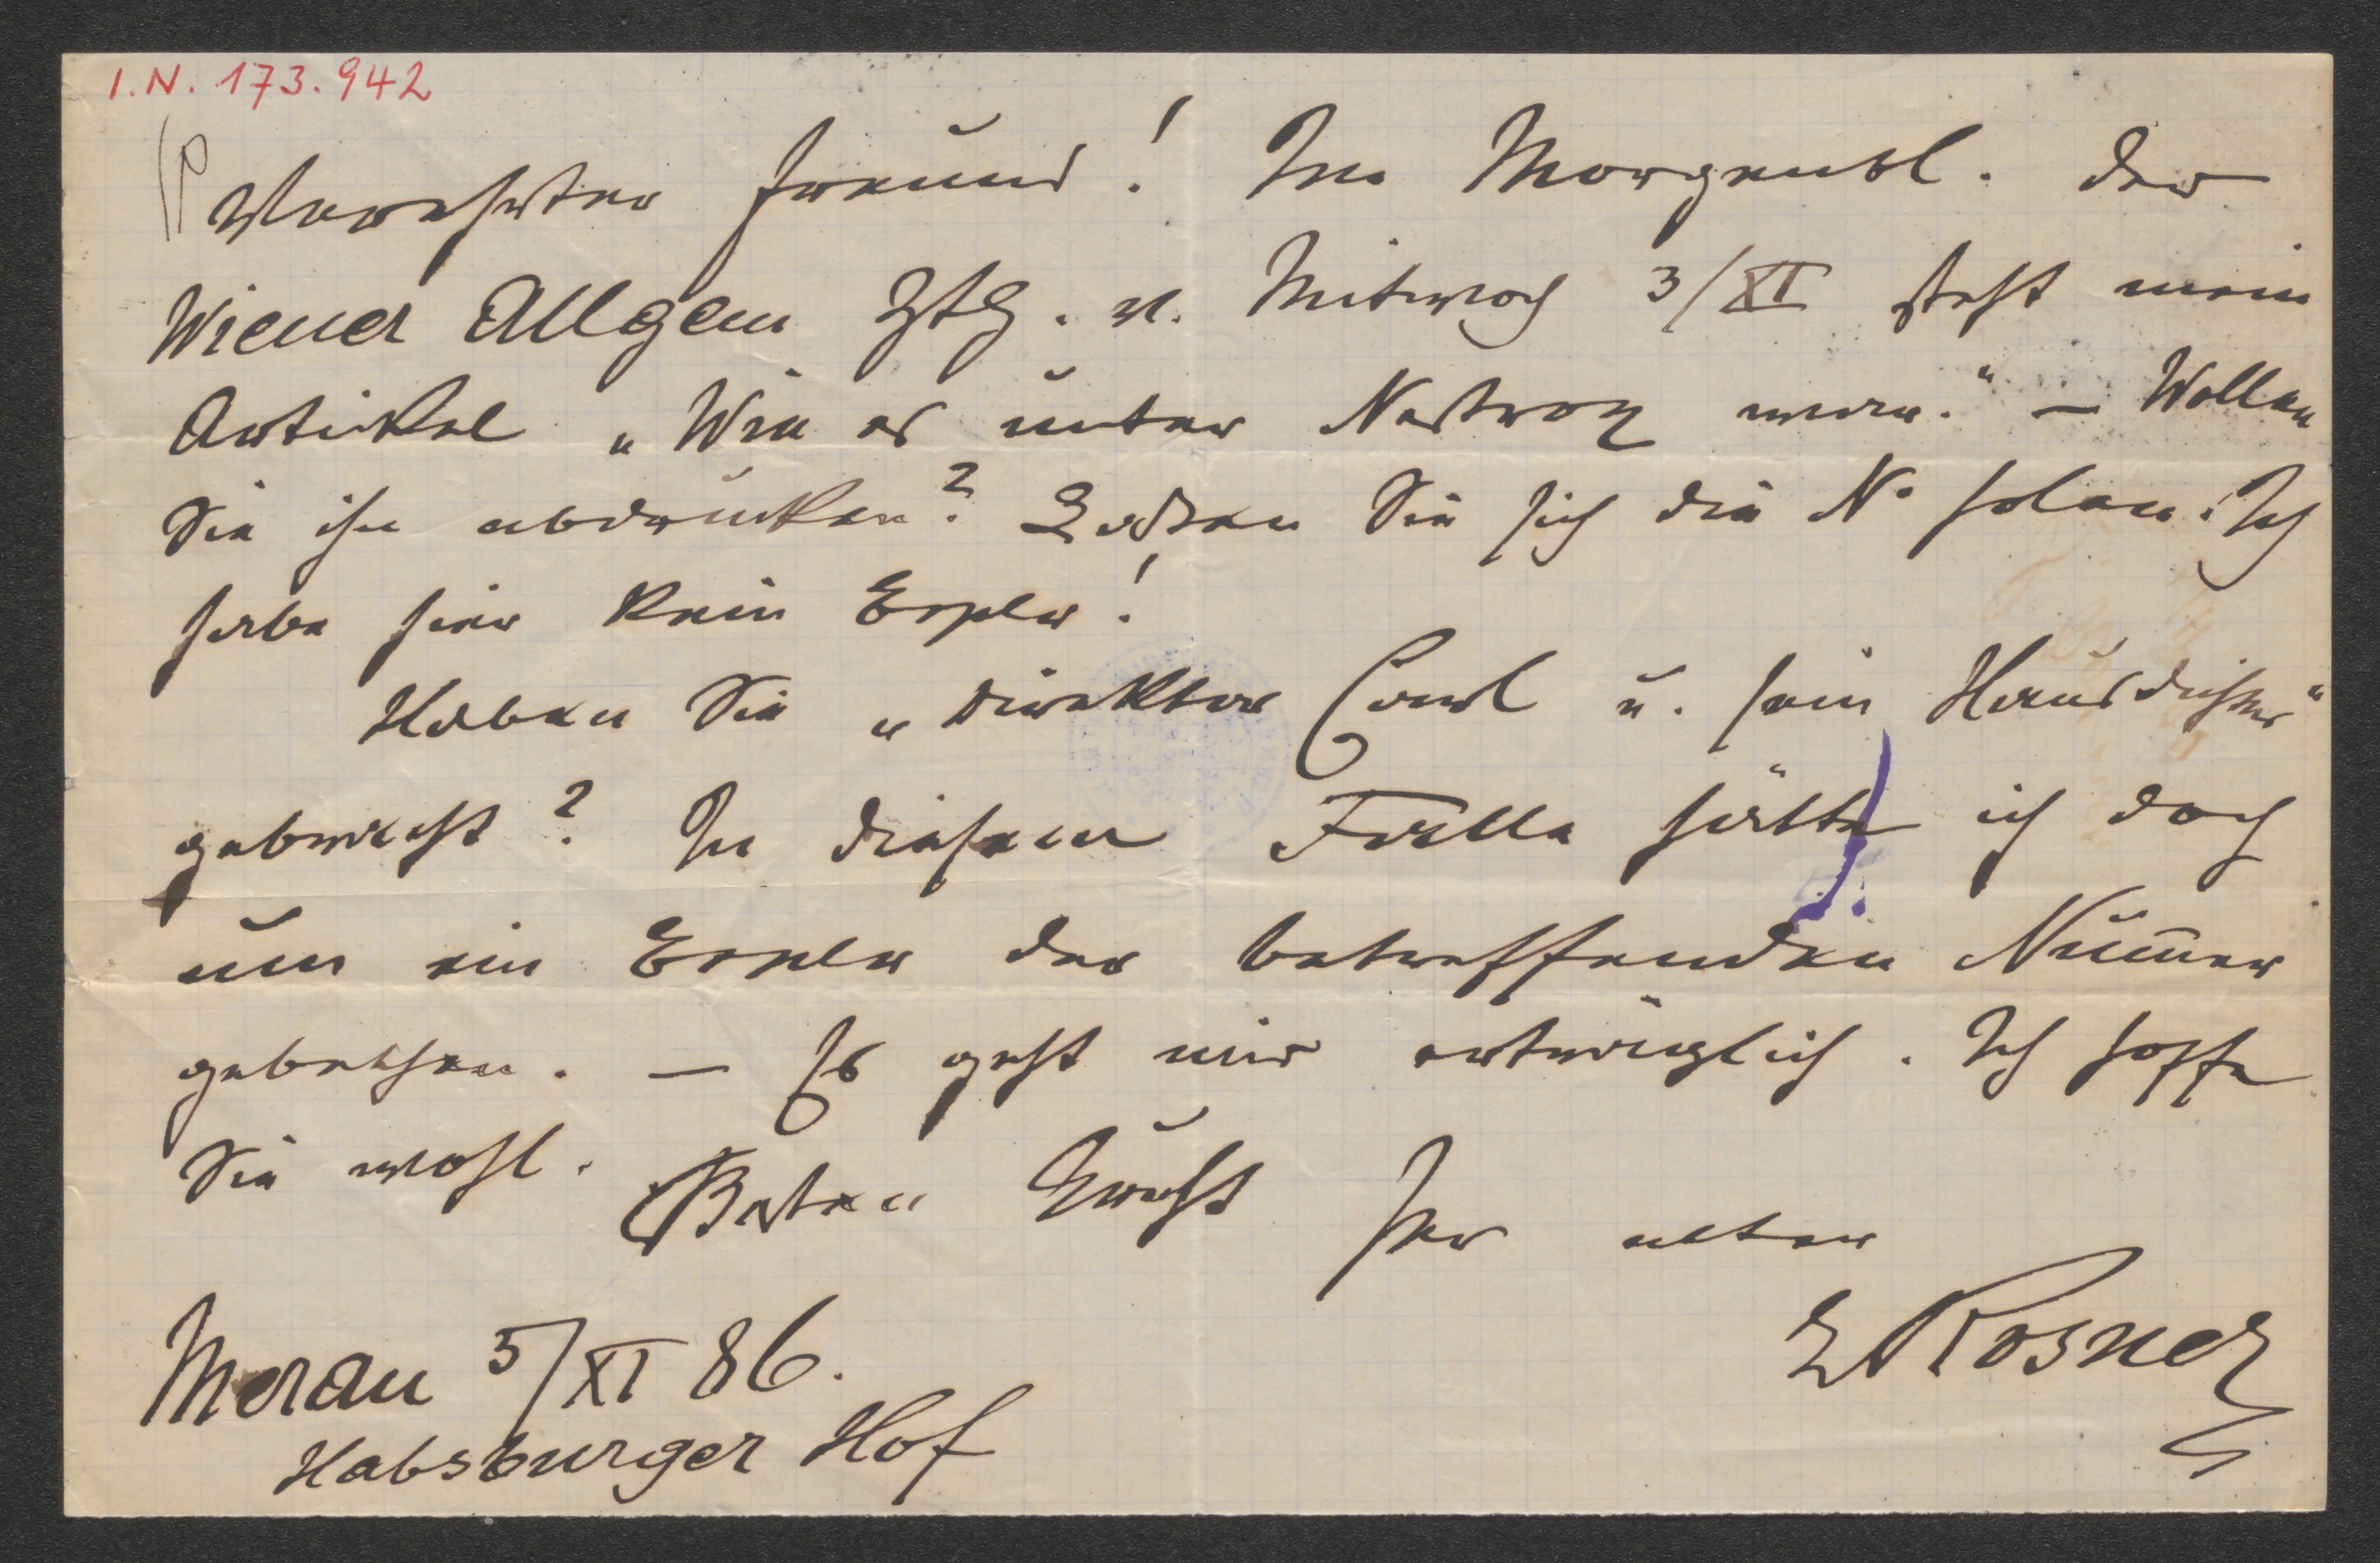 I.N. 173.942
Verehrter Freund! Im Morgenbl. der
Wiener Allgem Ztg. v. Mitwoch 3/XI steht mein
Artikel „Wie es unter Nestroy war.“ — Wollen
Sie ihn abdrucken? Laßen Sie sich die No holen. Ich
habe hier kein Explr!
Haben Sie „Direktor Carl u. sein Hausdichter“
gebracht? In diesem Falle hätte ich doch
um ein Explr der betreffenden Num̄er
gebethen. — Es geht mir erträglich. Ich hoffe
Sie wohl. Besten Gruß Ihr alter
LRosner
Meran 5/XI 86.
Habsburger Hof